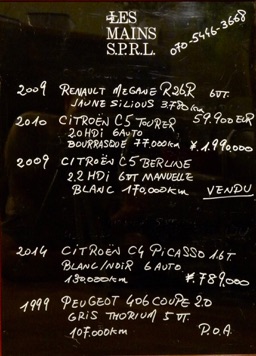 LES
MAINS
S.P.R.L.
070-5446-3668
2009 RENAULT MEGANE R26R 6VT.
JAUNE SILIOUS 3.780km
2010 CITROËN C5 TOURER 59.900EUR
2.0HDi 6AUTO
BOURRASQUE 77,000km ¥.1,990,000
2009 CITROËN C5 BERLINE
2.2HDi 6VT MANUELLE
BLANC 170,000km VENDU
2014 CITROËN C4 PICASSO 1.6T
BLANC/NOIR 6 AUTO
130,000km ¥.789,000
1999 PEUGEOT 406 COUPE 2.0
GRIS THORIUM 5 VT.
107,000km P.O.A.